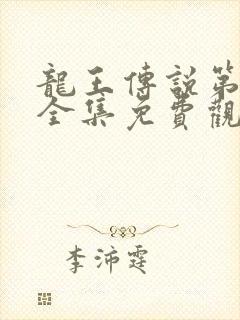 龍王傳說第
全集免費觀
李沛霆